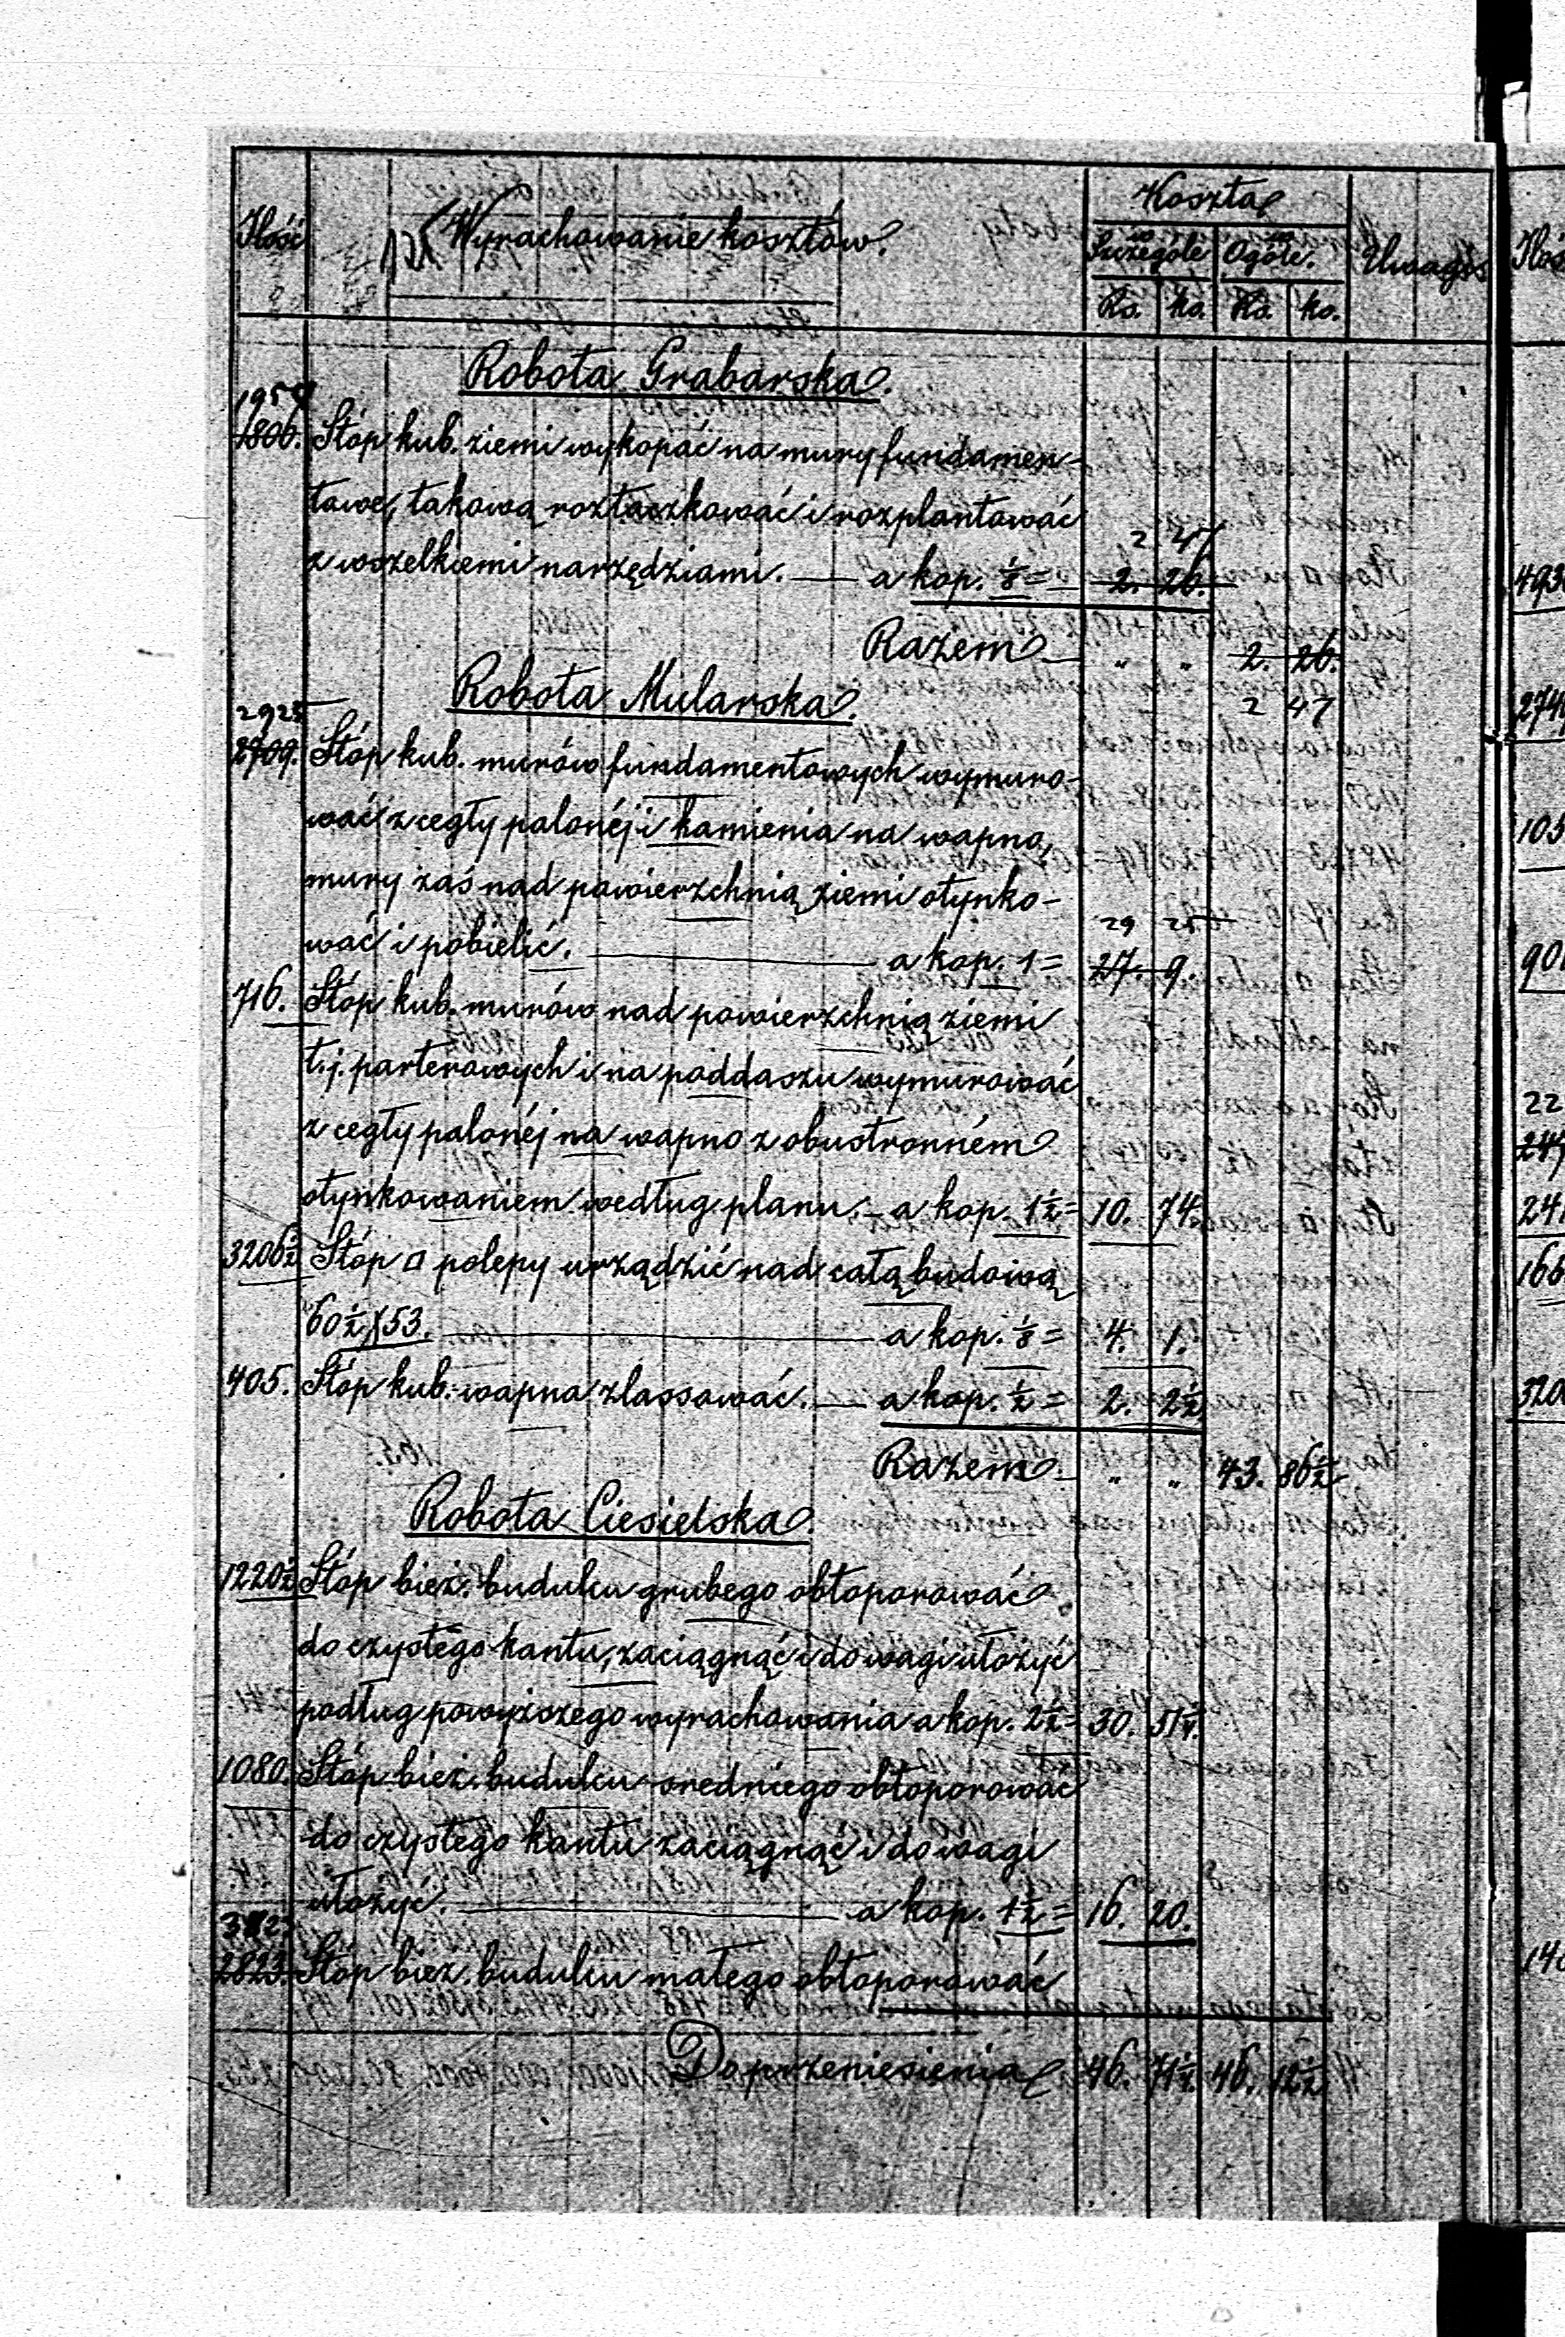 Ilość
Wyrachowanie kosztów.
Koszta
w Szczególe
w Ogóle.
Uwagi
Rs. ko. Rs. ko.
Robota Grabarska.
1806. Stóp kub. ziemi wykopać na mury fundamen-
towe, takową roztaczkować i rozplantować
2 47
z wszelkiemi narzędziami. — a kop. 1/8 = 2. 26.
Razem — " " 2. 26.
2 47
Robota Mularska.
2925
2709. Stóp kub. murów fundamentowych wymuro-
wać z cegły palonéj i kamienia na wapno,
mury zaś nad powierzchnią ziemi otynko-
29 25
wać i pobielić. — a kop. 1 = 27. 9.
716. Stóp kub. murów nad powierzchnią ziemi
t.j. parterowych i na poddaszu wymurować
z cegły palonéj na wapno z obustronném
otynkowaniem według planu. — a kop. 1 1/2 = 10. 74.
3206 1/2 Stóp □ polepy urządzić nad całą budową
60 1/2 X 53. — a kop. 1/8 = 4. 1.
405. Stóp kub. wapna zlassować. — a kop. 1/2 = 2. 2 1/2
Razem — " " 43. 86 1/2
Robota Ciesielska.
1220 1/2 Stóp bież. budulcu grubego obtoporować
do czystego kantu, zaciągnąć i do wagi ułożyć
podług powyższego wyrachowania a kop. 2 1/2 = 30. 51 1/4.
1080. Stóp bież. budulcu średniego obtoporować
do czystego kantu zaciągnąć i do wagi
ułożyć. — a kop. 1 1/2 = 16. 20.
2823. Stóp bież. budulcu małego obtoporować
Do przeniesienia 46. 71 1/4. 46. 12 1/2